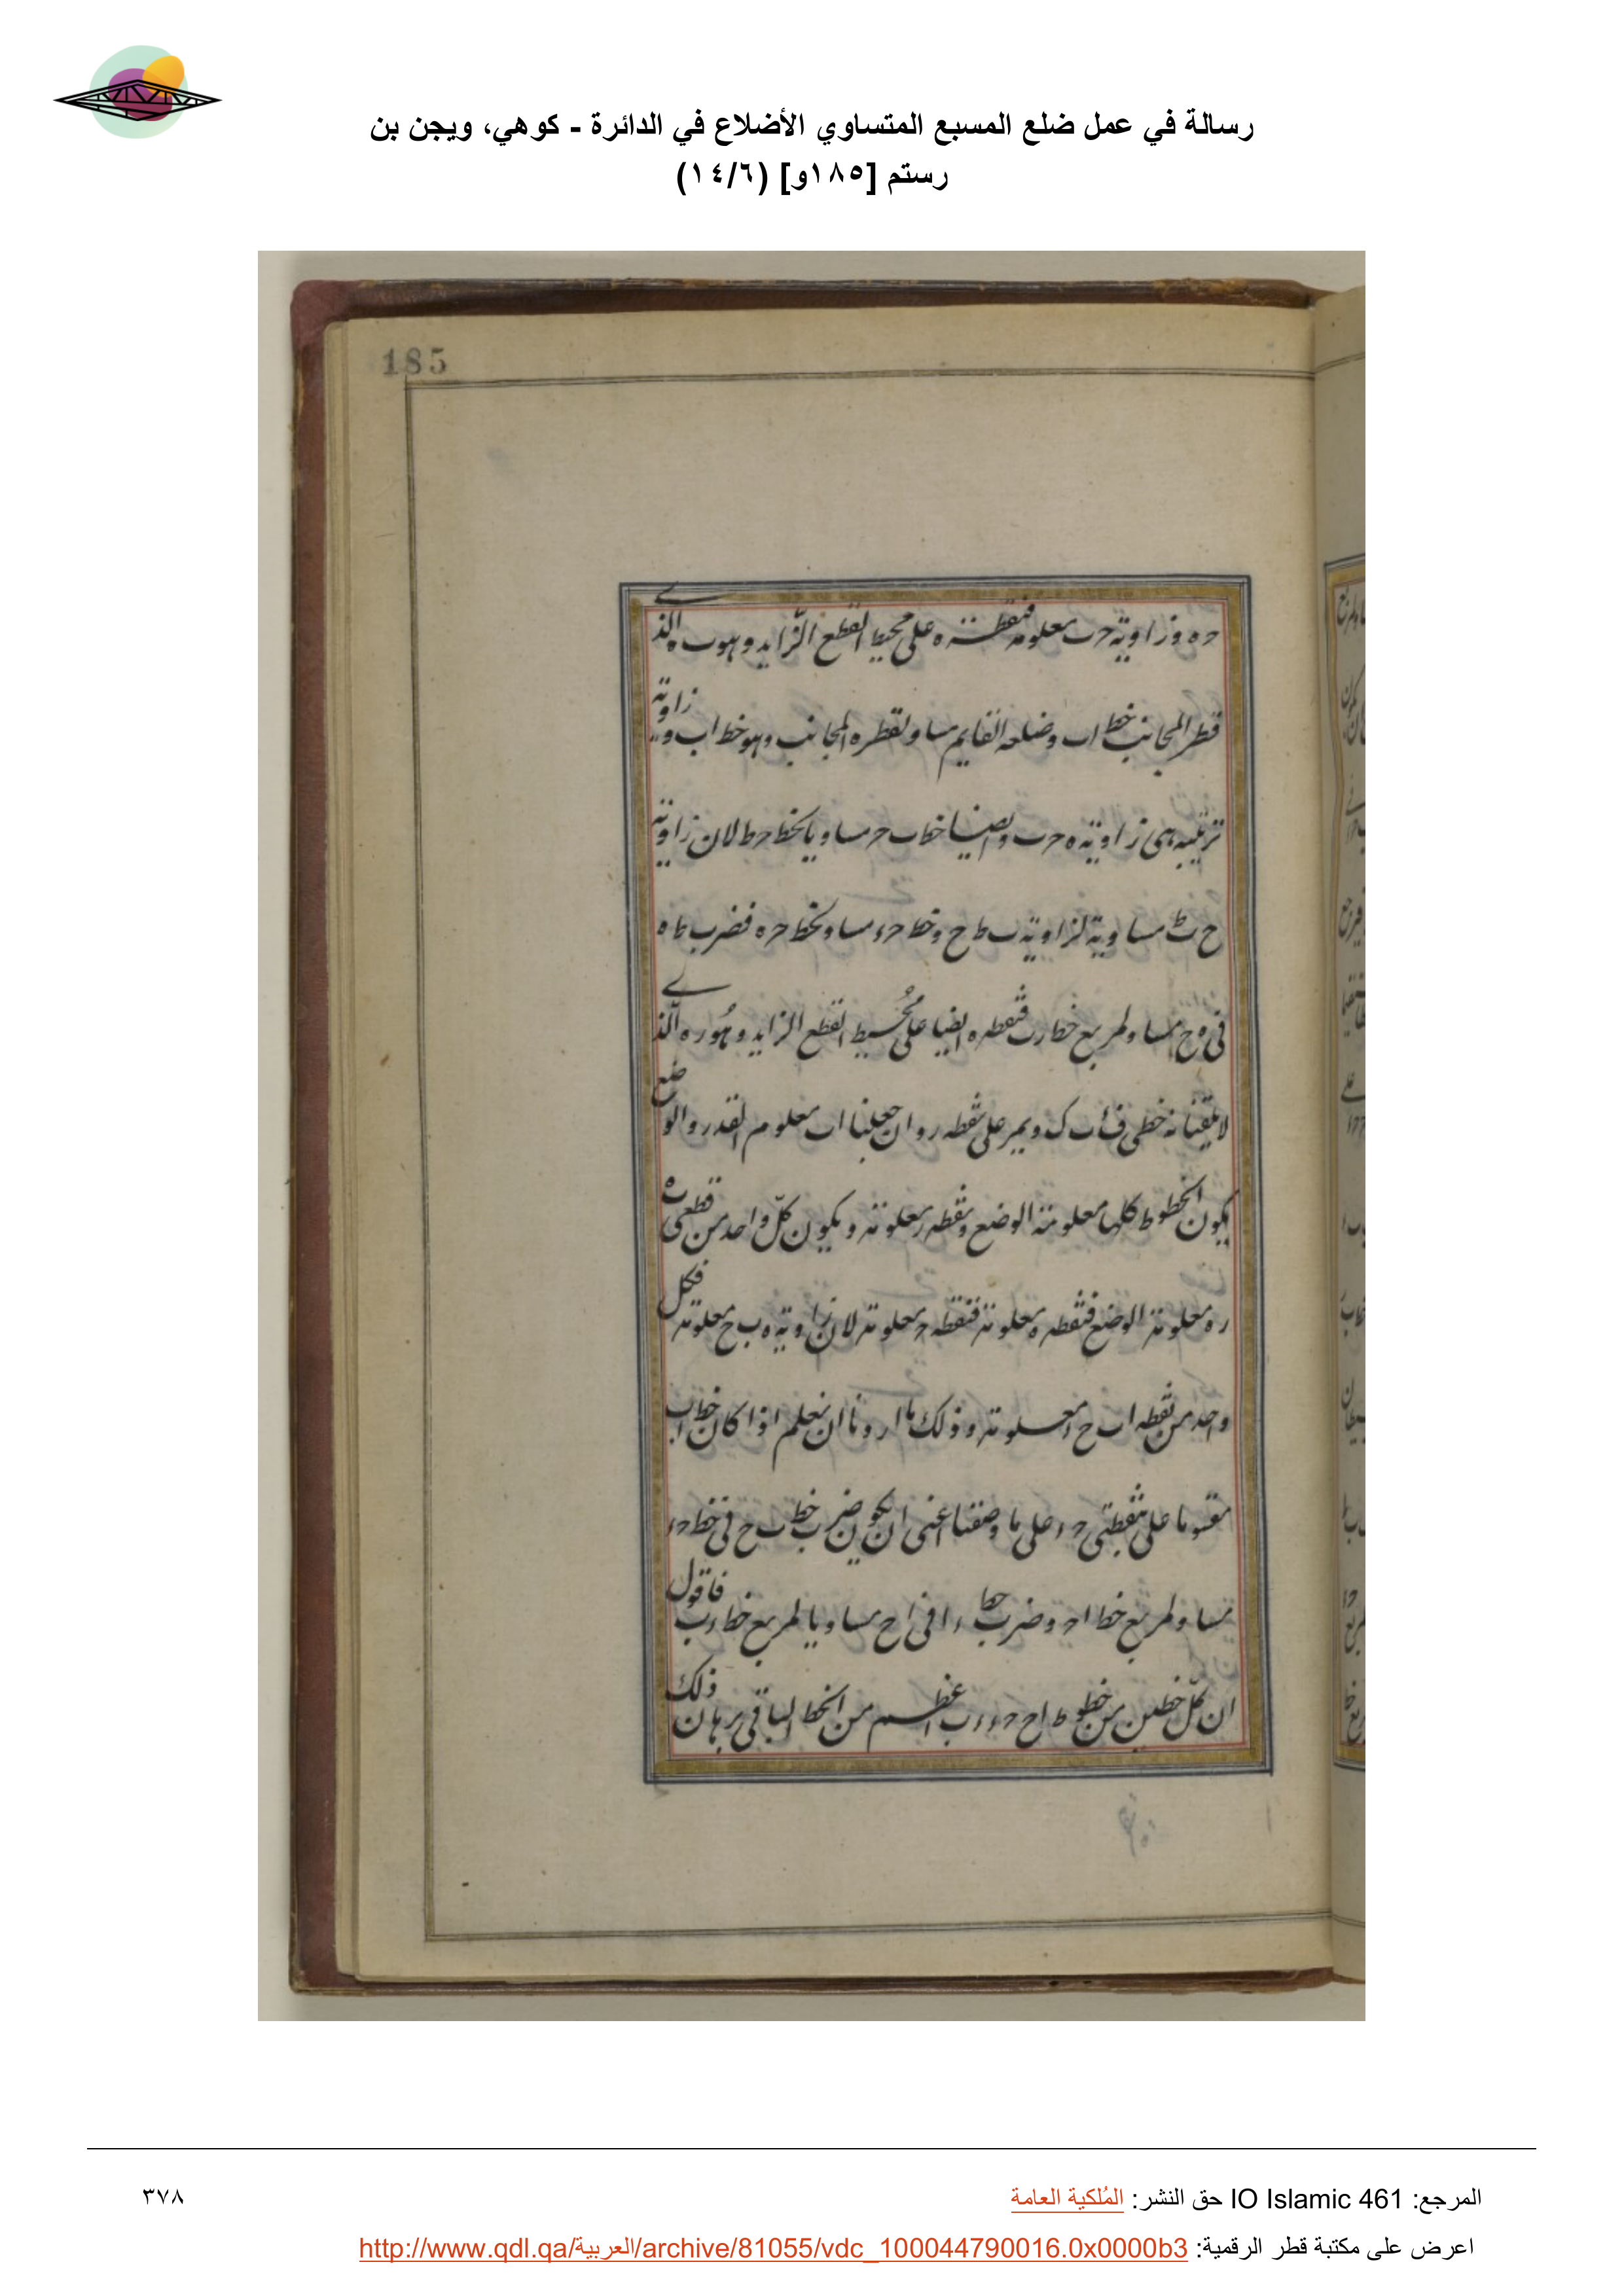 رسالة في عمل ضلع المسبع المتساوي الأضلاع في الدائرة - كوهي، ويجن بن
رستم [١٨٥و] (١٤/٦)
185
ح ه وزاوية ح ب معلومة فنقطة ه على محيط القطع الزايد وهو ب ه الذي
قطر المجانب خط اب وضلعه القايم مساو لقطره المجانب وهو خط اب وزاوية
ترتيبه هي زاوية ه ح ب وايضا خط ب ح مساويا لخط ح ط لان زاوية
ح ط مساوية لزاوية ب ط ح وخط ح ء مساو لخط ح ه فضرب ط ه
في ه ح مساو لمربع خط ر ب فنقطه ه ايضا على محيط القطع الزايد وهو ر ه الذي
لا يلقيانه خطي ف ب ك ويمر على نقطه ر وان جعلنا اب معلوم القدر والوضع
يكون الخطوط كلها معلومة الوضع ونقطه ر معلومة ويكون كل واحد من قطعي ب ه
ر ه معلومة الوضع فنقطه ه معلومة فنقطه ح معلومة لان زاوية ه ب ح معلومة فكل
واحد من نقطه اب ح ء معلومة وذلك ما اردنا ان نعلم اذا كان خط اب
مقسوما على نقطتي ح ء على ما وصفنا اعني ان يكون ضرب خط ب ح في خط ح ء
مساو لمربع خط اح وضرب خط ء ا في اح مساويا لمربع خط ء ب فاقول
ان كل خطين من خطوط اح ح ء ء ب اعظم من الخط الباقي برهان ذلك
المرجع: IO Islamic 461 حق النشر: المُلكية العامة
٣٧٨
اعرض على مكتبة قطر الرقمية: http://www.qdl.qa/العربية/archive/81055/vdc_100044790016.0x0000b3